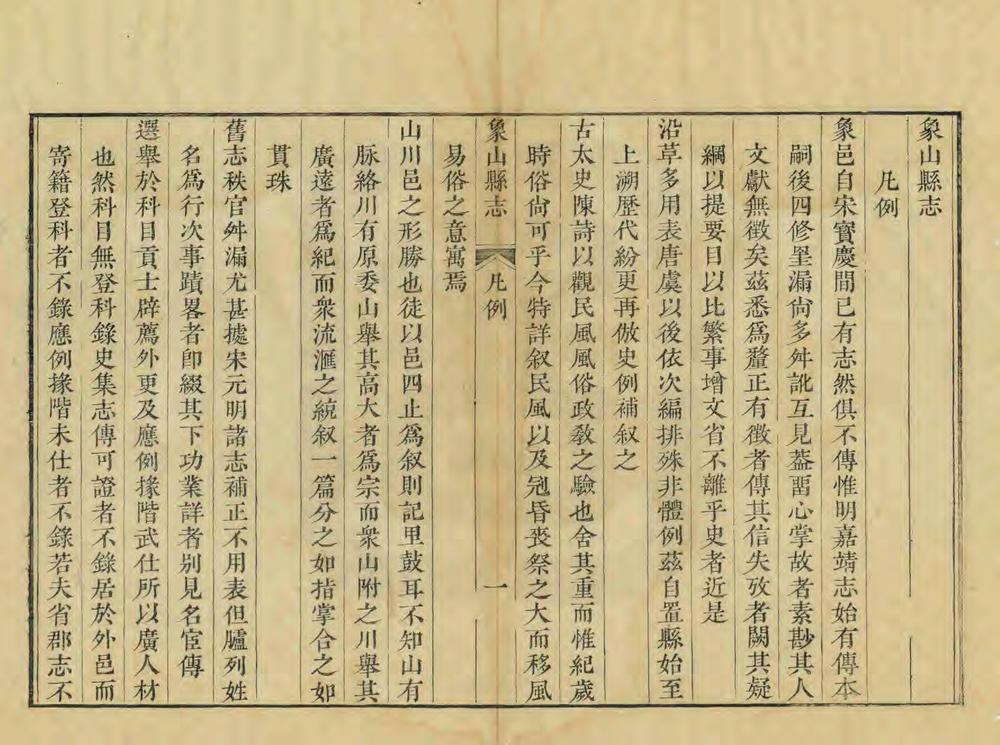 象山縣志
凡例
象邑自宋寶慶間已有志然俱不傳惟明嘉靖志始有傳本
嗣後四修罣漏尙多舛訛互見葢畱心掌故者素尠其人
文獻無徵矣茲悉爲釐正有徵者傳其信失攷者闕其疑
綱以提要目以比繁事增文省不離乎史者近是
沿革多用表唐虞以後依次編排殊非體例茲自置縣始至
上溯歷代紛更再倣史例補叙之
古太史陳詩以觀民風風俗政敎之驗也舍其重而惟紀歲
時俗尙可乎今特詳叙民風以及冠昏喪祭之大而移風
象山縣志
凡例
一
易俗之意寓焉
山川邑之形勝也徒以邑四止爲叙則記里鼓耳不知山有
脉絡川有原委山舉其高大者爲宗而衆山附之川舉其
廣遠者爲紀而衆流滙之統叙一篇分之如指掌合之如
貫珠
舊志秩官舛漏尤甚據宋元明諸志補正不用表但臚列姓
名爲行次事蹟畧者卽綴其下功業詳者別見名宦傳
選舉於科目貢士辟薦外更及應例掾階武仕所以廣人材
也然科目無登科錄史集志傳可證者不錄居於外邑而
寄籍登科者不錄應例掾階未仕者不錄若夫省郡志不